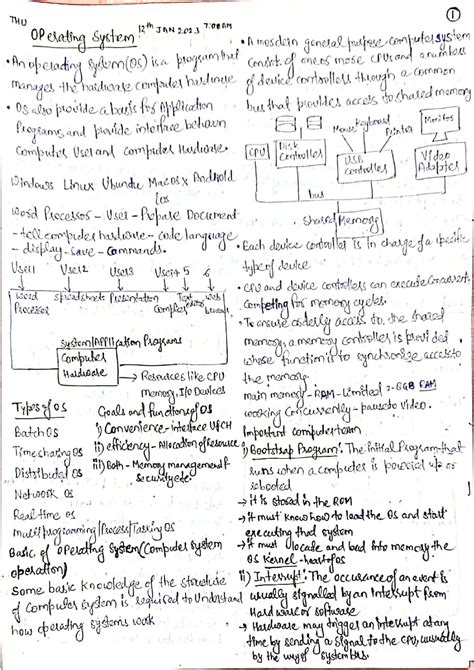 THU
Operating System 12th JAN 2023 7:00AM
• An operating System (OS) is a program that
manages the hardware computer hardware
• OS also provide a basis for Application
Programs and provide interface between
Computer User and computer Hardware.
Windows Linux Ubuntu MacOSX Android
ios
Word Processor - User - Prepare Document
- tell computer hardware - code language
- display - save - commands.
User1 User2 User3 User4 5 6
Word Processor Spreadsheets Presentation Compiler Text editor Web browser
System/Application Programs
Computer
Hardware
→ Resources like CPU
Memory, I/O Devices
Types of OS
Batch OS
Time sharing OS
Distributed OS
Network OS
Real-time OS
Multiprogramming/Process/Tasking OS
Goals and functions of OS
i) Convenience - interface
ii) efficiency - Allocation of Resource
iii) Both - Memory management &
security etc.
Basic of Operating System (Computer System
operation)
Some basic knowledge of the structure
of Computer System is required to Understand
how operating systems work
①
• A modern general purpose computer system
consist of one or more CPUs and a number
of device controllers through a common
bus that provides access to shared memory
CPU
Disk
Controller
Mouse Keyboard Printer
USB
Controller
Monitor
Video
Adapter
bus
Shared Memory
• Each device controller is in charge of a specific
type of device
• CPU and device controllers can execute Concurrent.
Competing for memory cycles.
• To ensure orderly access to the shared
memory, a memory controller is provided
whose function is to synchronize access to
the memory.
main memory - RAM - Limited 2-8GB RAM
working Concurrently - pause to video.
Important computer
i) Bootstrap Program: The initial Program that
runs when a computer is powered up or
rebooted
→ it is stored in the ROM
→ it must know how to load the OS and start
executing that system
→ it must locate and load into memory the
OS Kernel - heart of OS
ii) Interrupt: The occurance of an event is
usually signalled by an Interrupt from
Hardware or software
→ Hardware may trigger an interrupt at any
time by sending a signal to the CPU, usually
by the way of system bus.